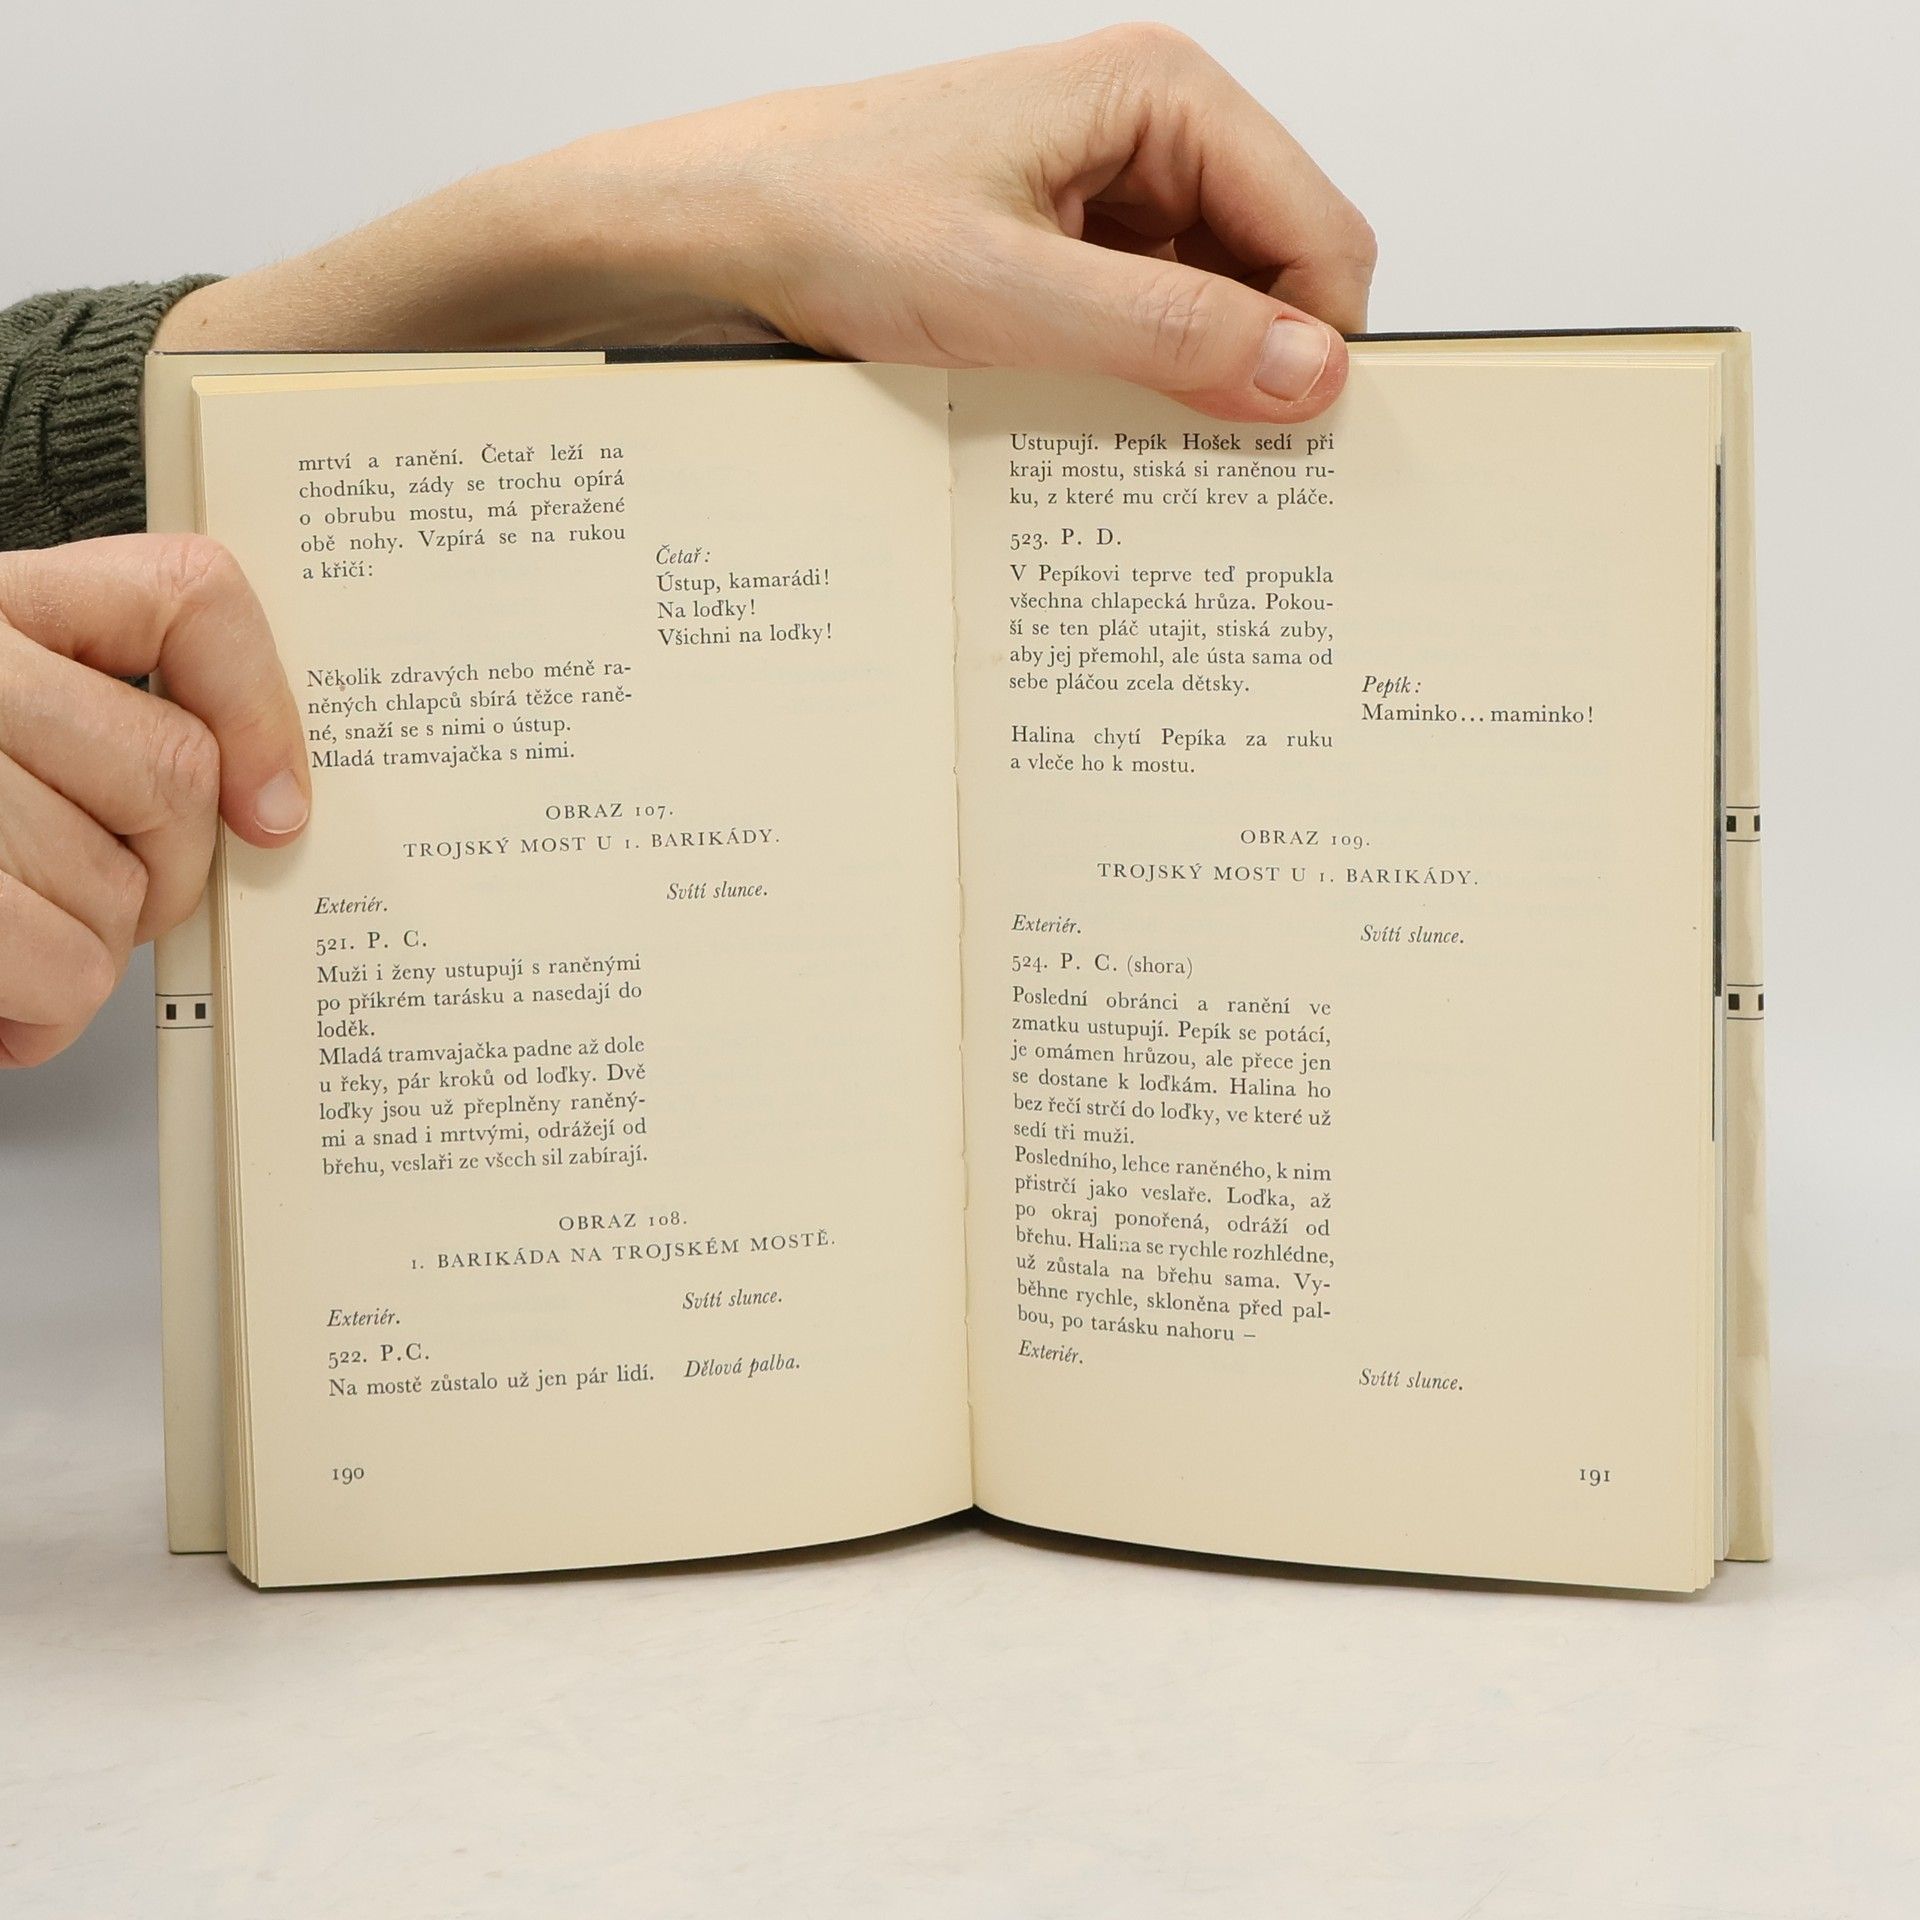 mrtví a ranění. Četař leží na
chodníku, zády se trochu opírá
o obrubu mostu, má přeražené
obě nohy. Vzpírá se na rukou
a křičí:
Četař:
Ústup, kamarádi!
Na loďky!
Všichni na loďky!
Několik zdravých nebo méně ra-
něných chlapců sbírá těžce raně-
né, snaží se s nimi o ústup.
Mladá tramvajačka s nimi.
OBRAZ 107.
TROJSKÝ MOST U 1. BARIKÁDY.
Exteriér. Svítí slunce.
521. P. C.
Muži i ženy ustupují s raněnými
po příkrém tarásku a nasedají do
loděk.
Mladá tramvajačka padne až dole
u řeky, pár kroků od loďky. Dvě
loďky jsou už přeplněny raněný-
mi a snad i mrtvými, odrážejí od
břehu, veslaři ze všech sil zabírají.
OBRAZ 108.
1. BARIKÁDA NA TROJSKÉM MOSTĚ.
Exteriér. Svítí slunce.
522. P.C.
Na mostě zůstalo už jen pár lidí. Dělová palba.
190
Ustupují. Pepík Hošek sedí při
kraji mostu, stiská si raněnou ru-
ku, z které mu crčí krev a pláče.
523. P. D.
V Pepíkovi teprve teď propukla
všechna chlapecká hrůza. Pokou-
ší se ten pláč utajit, stiská zuby,
aby jej přemohl, ale ústa sama od
sebe pláčou zcela dětsky.
Pepík:
Maminko... maminko!
Halina chytí Pepíka za ruku
a vleče ho k mostu.
OBRAZ 109.
TROJSKÝ MOST U 1. BARIKÁDY.
Exteriér. Svítí slunce.
524. P. C. (shora)
Poslední obránci a ranění ve
zmatku ustupují. Pepík se potácí,
je omámen hrůzou, ale přece jen
se dostane k loďkám. Halina ho
bez řečí strčí do loďky, ve které už
sedí tři muži.
Posledního, lehce raněného, k nim
přistrčí jako veslaře. Loďka, až
po okraj ponořená, odráží od
břehu. Halina se rychle rozhlédne,
už zůstala na břehu sama. Vy-
běhne rychle, skloněna před pal-
bou, po tarásku nahoru –
Exteriér. Svítí slunce.
191